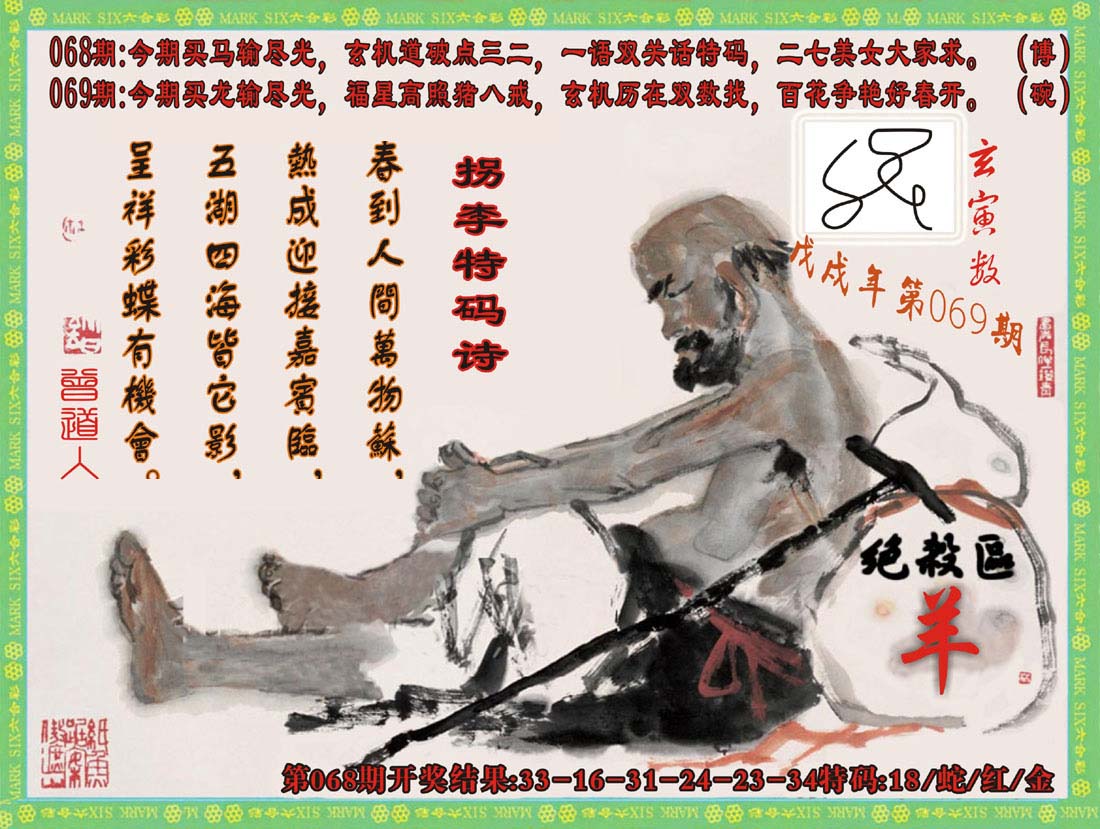 MARK SIX六合彩
068期:今期买马输尽光，玄机道破点三二，一语双关话特码，二七美女大家求。（博）
069期:今期买龙输尽光，福星高照猪八戒，玄机历在双数找，百花争艳好春开。（碗）
玄寅数
戊戌年第069期
拐李特码诗
春到人間萬物蘇，
熱成迎接嘉賓臨，
五湖四海皆它影，
呈祥彩蝶有機會。
曾道人
绝殺區
羊
第068期开奖结果:33-16-31-24-23-34特码:18/蛇/红/金